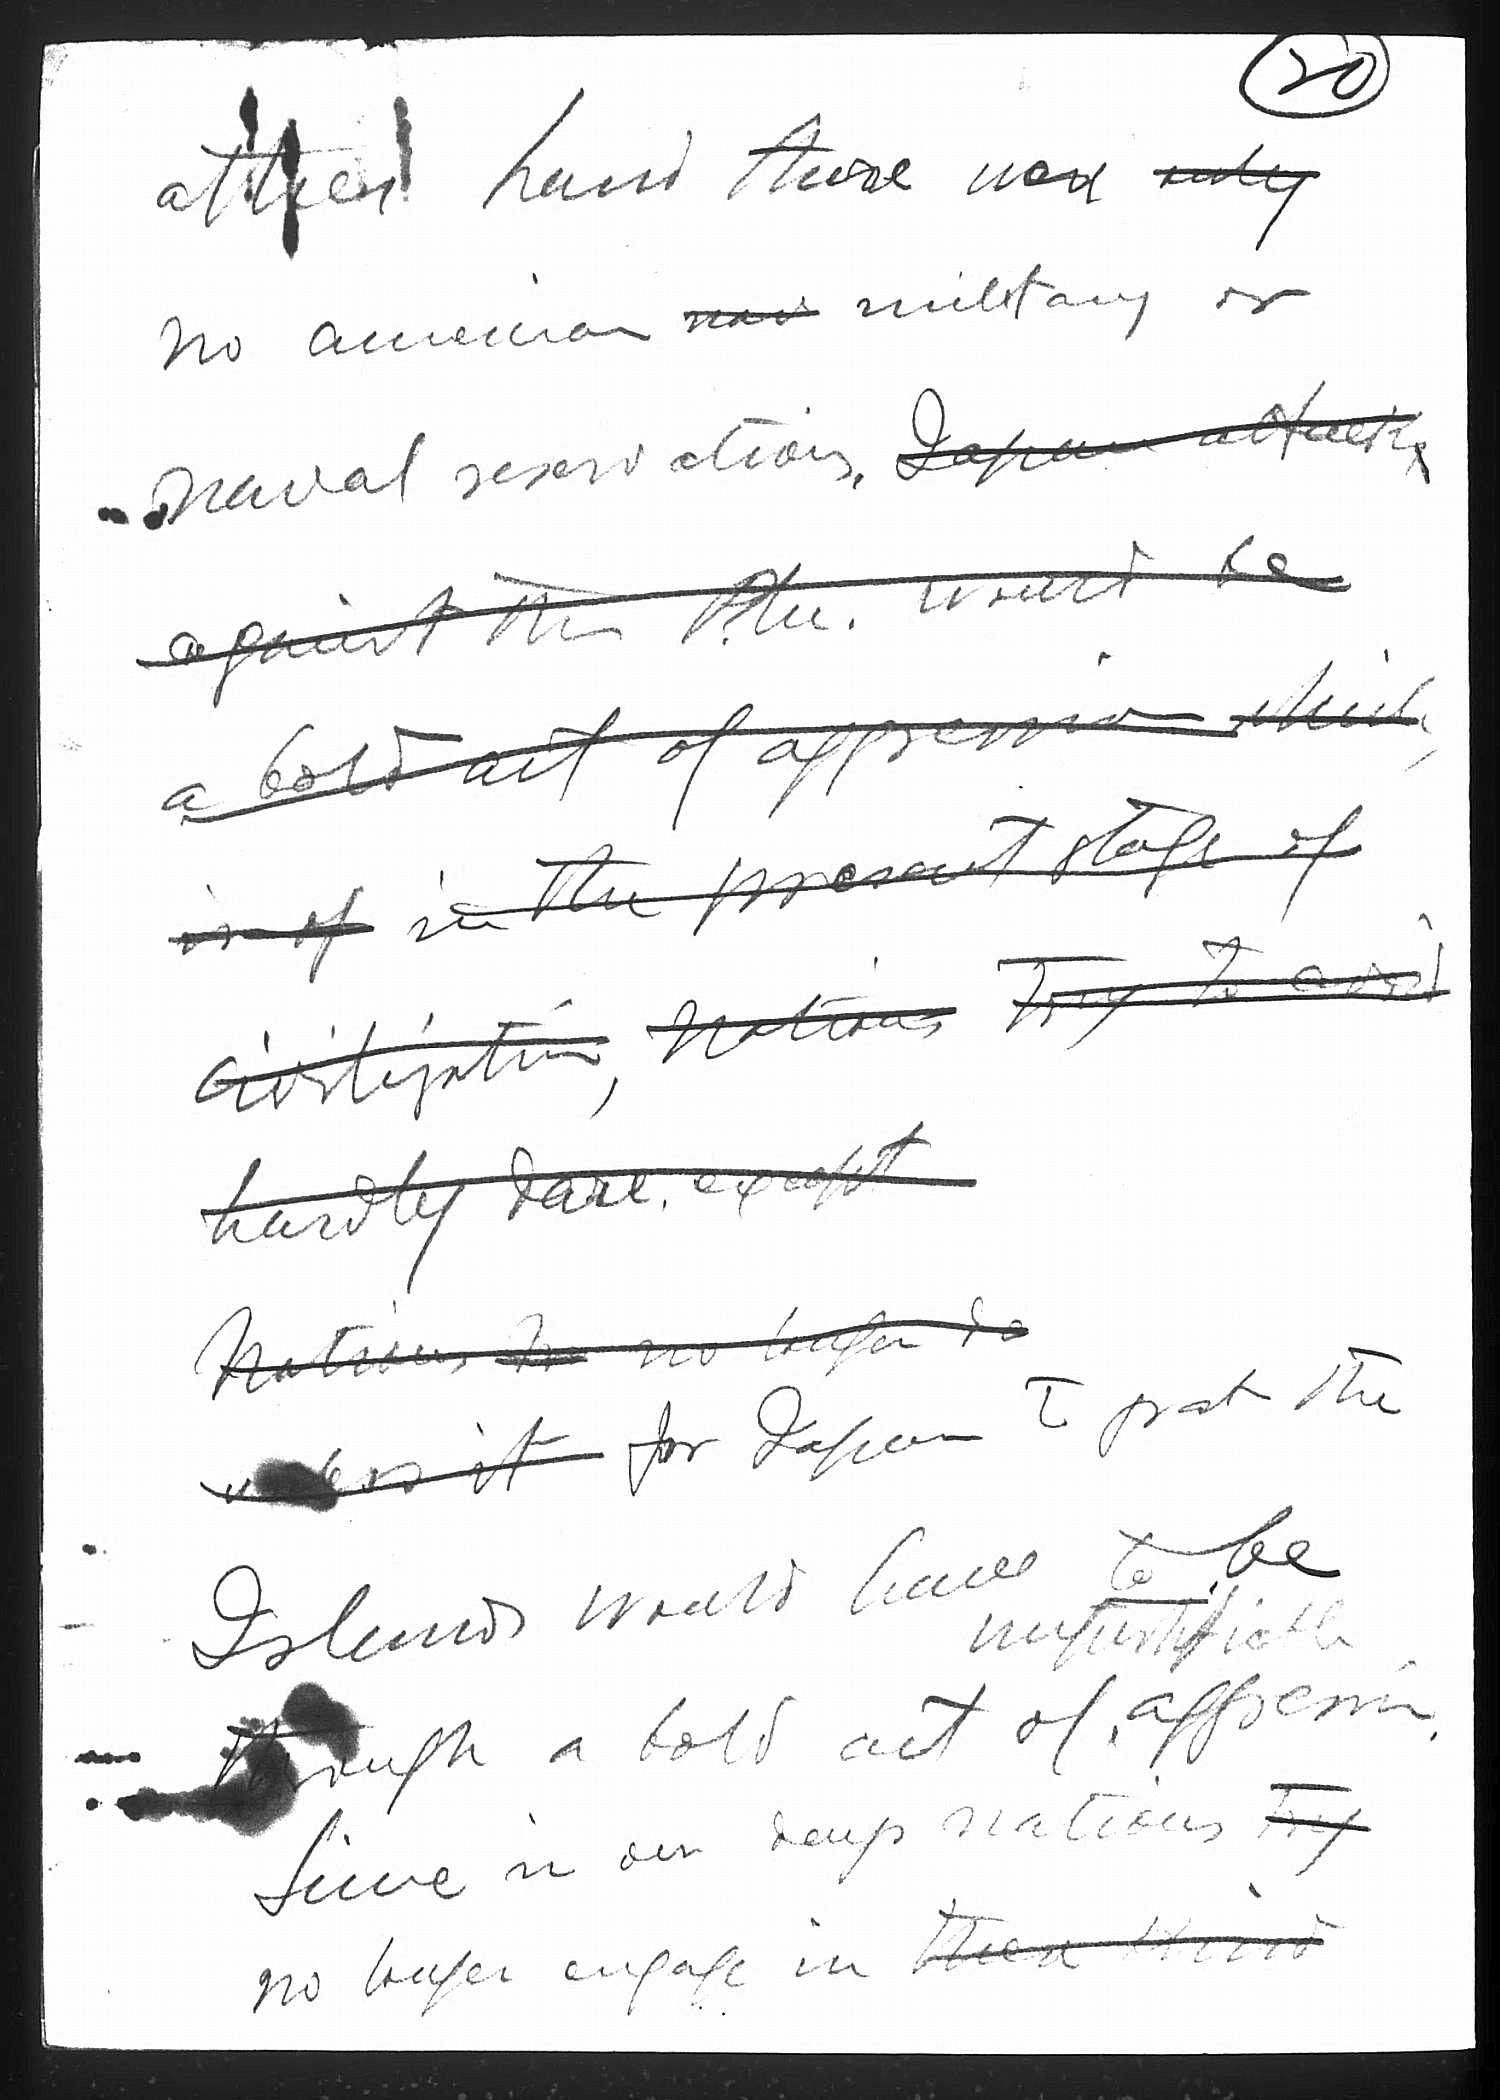 20
other hand there were only
no American nav military or
naval reservations. Japan attacking
against the Phil. would be
a bold act of aggression which,
is of in the present stage of
civilization, nations try to avoid
hardly dare except
Nations do no longer do
unless it for Japan to grab the
Islands would have to be
unjustifiable
through a bold act of aggression.
Since in our days nations try
no longer engage in these kind